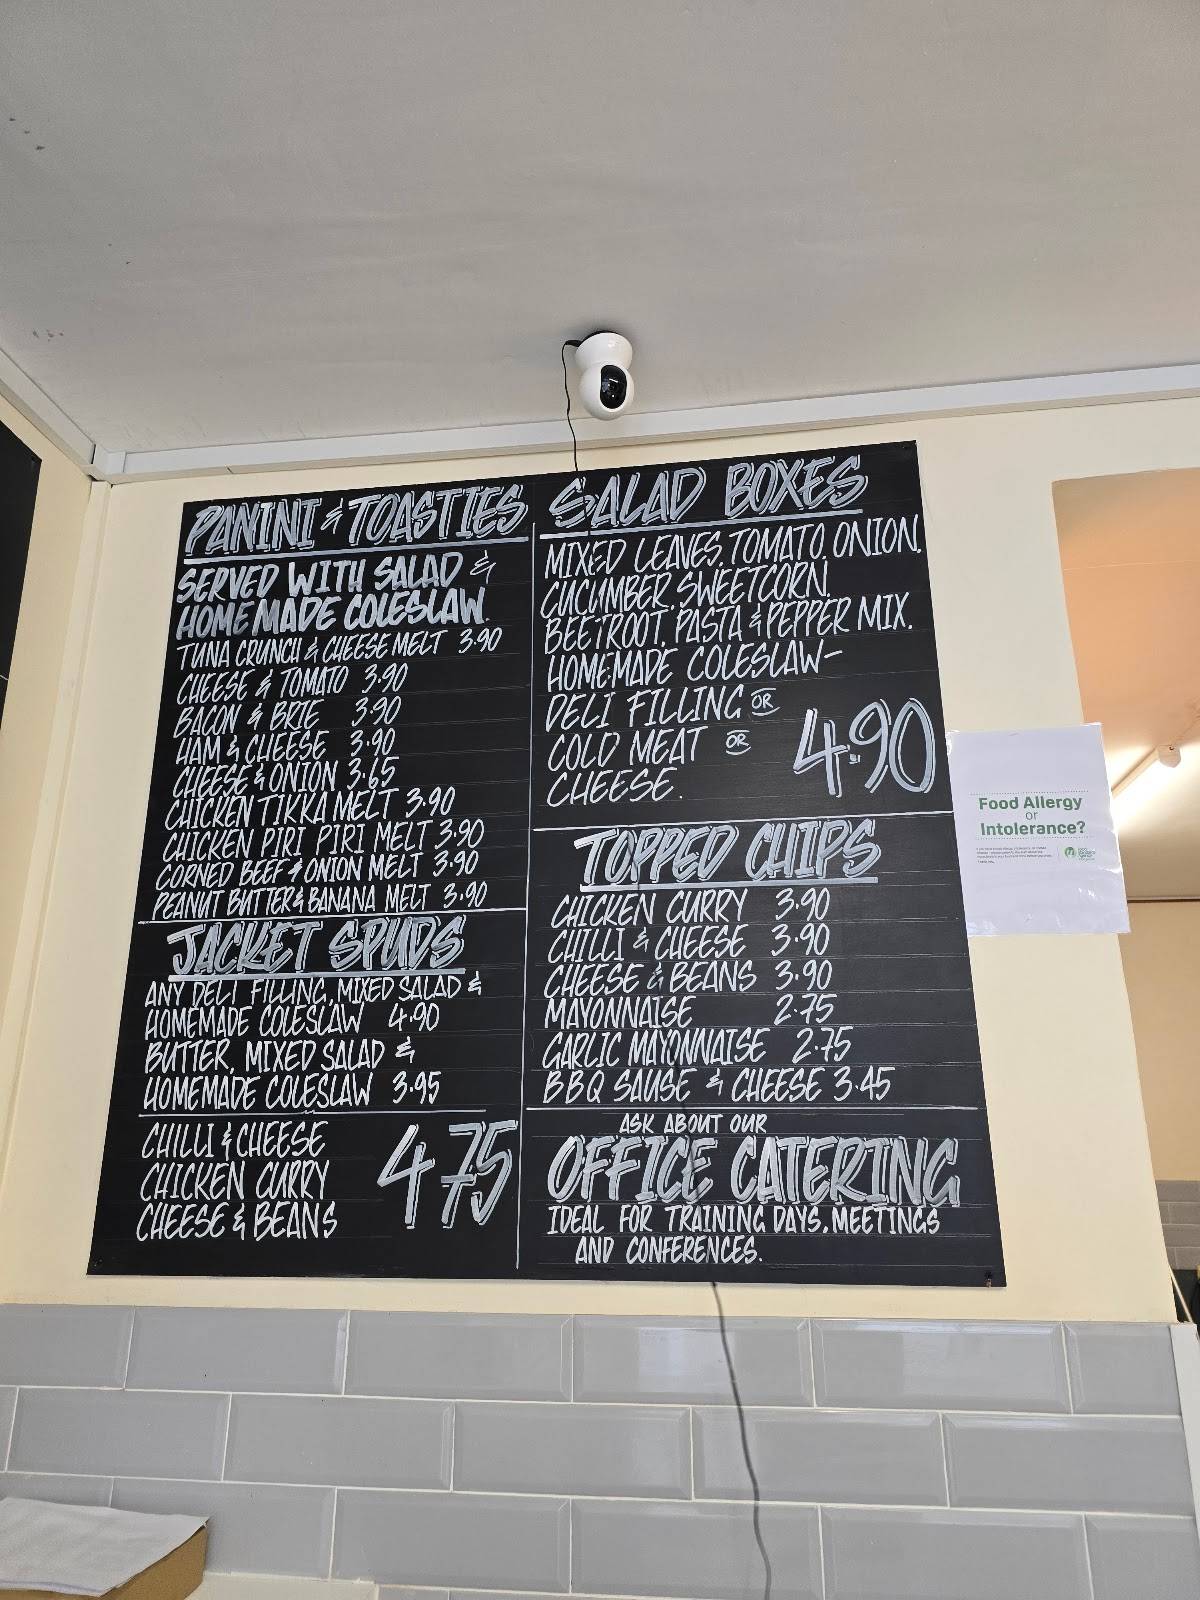 PANINI & TOASTIES
SERVED WITH SALAD &
HOMEMADE COLESLAW.
TUNA CRUNCH & CHEESE MELT 3.90
CHEESE & TOMATO 3.90
BACON & BRIE 3.90
HAM & CHEESE 3.90
CHEESE & ONION 3.65
CHICKEN TIKKA MELT 3.90
CHICKEN PIRI PIRI MELT 3.90
CORNED BEEF & ONION MELT 3.90
PEANUT BUTTER & BANANA MELT 3.90
JACKET SPUDS
ANY DELI FILLING, MIXED SALAD &
HOMEMADE COLESLAW 4.90
BUTTER, MIXED SALAD &
HOMEMADE COLESLAW 3.95
CHILLI & CHEESE
CHICKEN CURRY
CHEESE & BEANS
4.75
SALAD BOXES
MIXED LEAVES, TOMATO, ONION,
CUCUMBER, SWEETCORN,
BEETROOT, PASTA & PEPPER MIX,
HOMEMADE COLESLAW-
DELI FILLING OR
COLD MEAT OR
CHEESE.
4.90
TOPPED CHIPS
CHICKEN CURRY 3.90
CHILLI & CHEESE 3.90
CHEESE & BEANS 3.90
MAYONNAISE 2.75
GARLIC MAYONNAISE 2.75
BBQ SAUSE & CHEESE 3.45
ASK ABOUT OUR
OFFICE CATERING
IDEAL FOR TRAINING DAYS, MEETINGS
AND CONFERENCES.
Food Allergy
or
Intolerance?